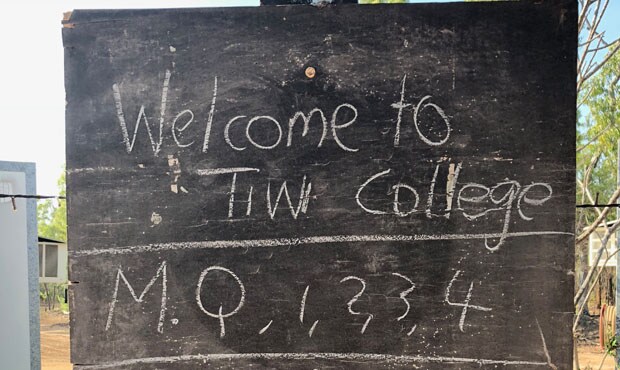 Welcome to
Tiwi College
M.Q,1,2,3,4